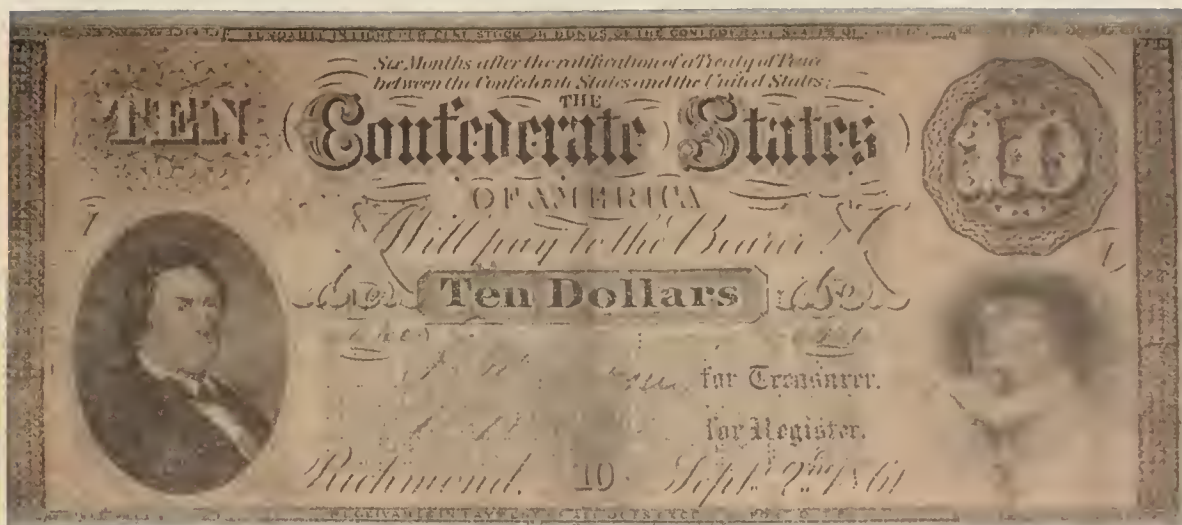 FUNDABLE IN EIGHT PER CENT STOCK OR BONDS OF THE CONFEDERATE STATES OF
Six Months after the ratification of a Treaty of Peace
between the Confederate States and the United States;
TEN
THE
Confederate States
10
OF AMERICA
Will pay to the Bearer
Ten Dollars
for Treasurer.
for Register.
Richmond. 10 Sept. 2nd 1861
RECEIVABLE IN PAYMENT OF ALL DUES EXCEPT